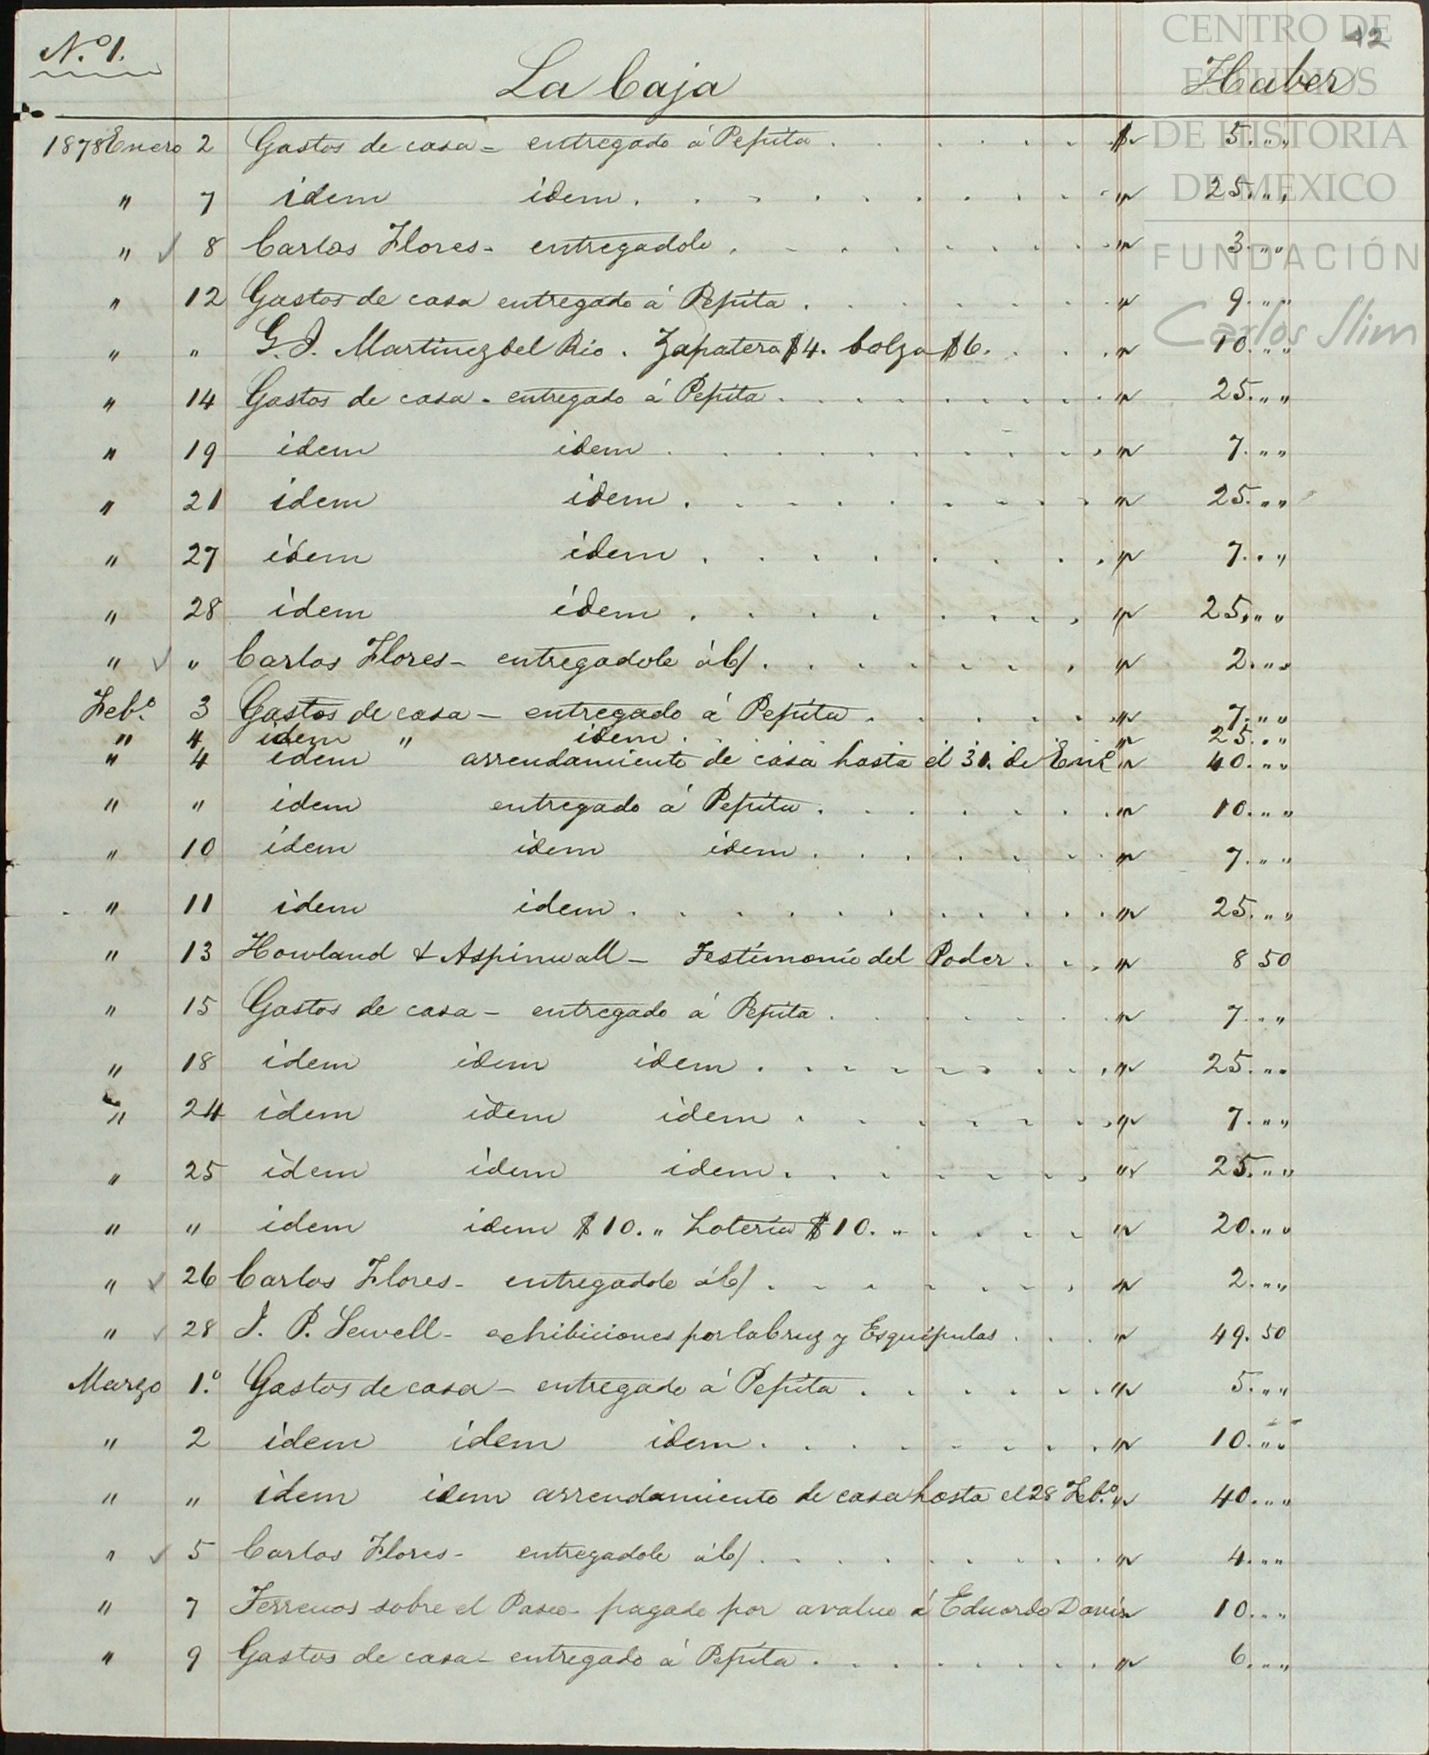 Nº 1. 12
La Caja Haber
1878 Enero 2 Gastos de casa - entregado á Pepita . . . . . . $ 5. „ „
„ 7 idem idem . . . . . . „ 25. „ „
„ ✓ 8 Carlos Flores - entregadole . . . . . . „ 3. „ „
„ 12 Gastos de casa entregado á Pepita . . . . . . „ 9. „ „
„ „ G. I. Martinez del Rio . Zapatera $4. bolza $6. . . . „ 10. „ „
„ 14 Gastos de casa - entregado á Pepita . . . . . . „ 25. „ „
„ 19 idem idem . . . . . . „ 7. „ „
„ 21 idem idem . . . . . . „ 25. „ „
„ 27 idem idem . . . . . . „ 7. „ „
„ 28 idem idem . . . . . . „ 25. „ „
„ ✓ „ Carlos Flores - entregadole á C/ . . . . . . „ 2. „ „
Febº. 3 Gastos de casa - entregado á Pepita . . . . . . „ 7. „ „
„ 4 idem „ idem . . . . . . „ 25. „ „
„ 4 idem arrendamiento de casa hasta el 31. de Enº „ 40. „ „
„ „ idem entregado á Pepita . . . . . . „ 10. „ „
„ 10 idem idem idem . . . . . . „ 7. „ „
„ 11 idem idem . . . . . . „ 25. „ „
„ 13 Howland & Aspinwall - Testimonio del Poder . . . „ 8 50
„ 15 Gastos de casa - entregado á Pepita . . . . . . „ 7. „ „
„ 18 idem idem idem . . . . . . „ 25. „ „
„ 24 idem idem idem . . . . . . „ 7. „ „
„ 25 idem idem idem . . . . . . „ 25. „ „
„ „ idem idem $10. „ Loteria $10. „ . . . . „ 20. „ „
„ ✓ 26 Carlos Flores - entregadole á C/ . . . . . . „ 2. „ „
„ ✓ 28 J. P. Sewell - echibiciones por la Cruz y Esquipulas . . . „ 49. 50
Marzo 1.º Gastos de casa - entregado á Pepita . . . . . . „ 5. „ „
„ 2 idem idem idem . . . . . . „ 10. „ „
„ „ idem idem arrendamiento de casa hasta el 28 Febº. „ 40. „ „
„ ✓ 5 Carlos Flores - entregadole á C/ . . . . . . „ 4. „ „
„ 7 Terrenos sobre el Paseo - pagado por avaluo á Eduardo Davis „ 10. „ „
„ 9 Gastos de casa - entregado á Pepita . . . . . . „ 6. „ „
CENTRO DE
ESTUDIOS
DE HISTORIA
DE MEXICO
FUNDACIÓN
Carlos Slim